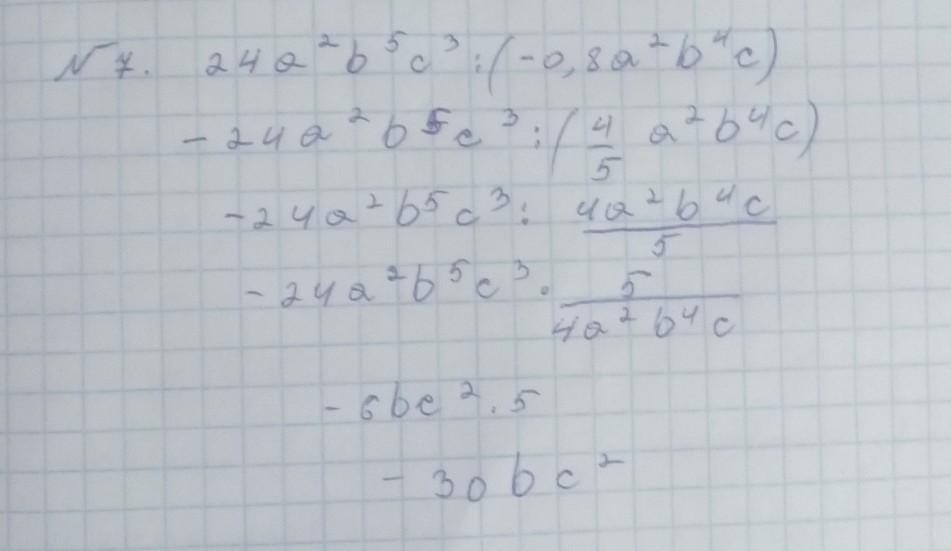 N 7. 24a²b⁵c³:(-0,8a²b⁴c)
-24a²b⁵c³:(4/5 a²b⁴c)
-24a²b⁵c³: 4a²b⁴c/5
-24a²b⁵c³ · 5/4a²b⁴c
-6bc²·5
-30bc²